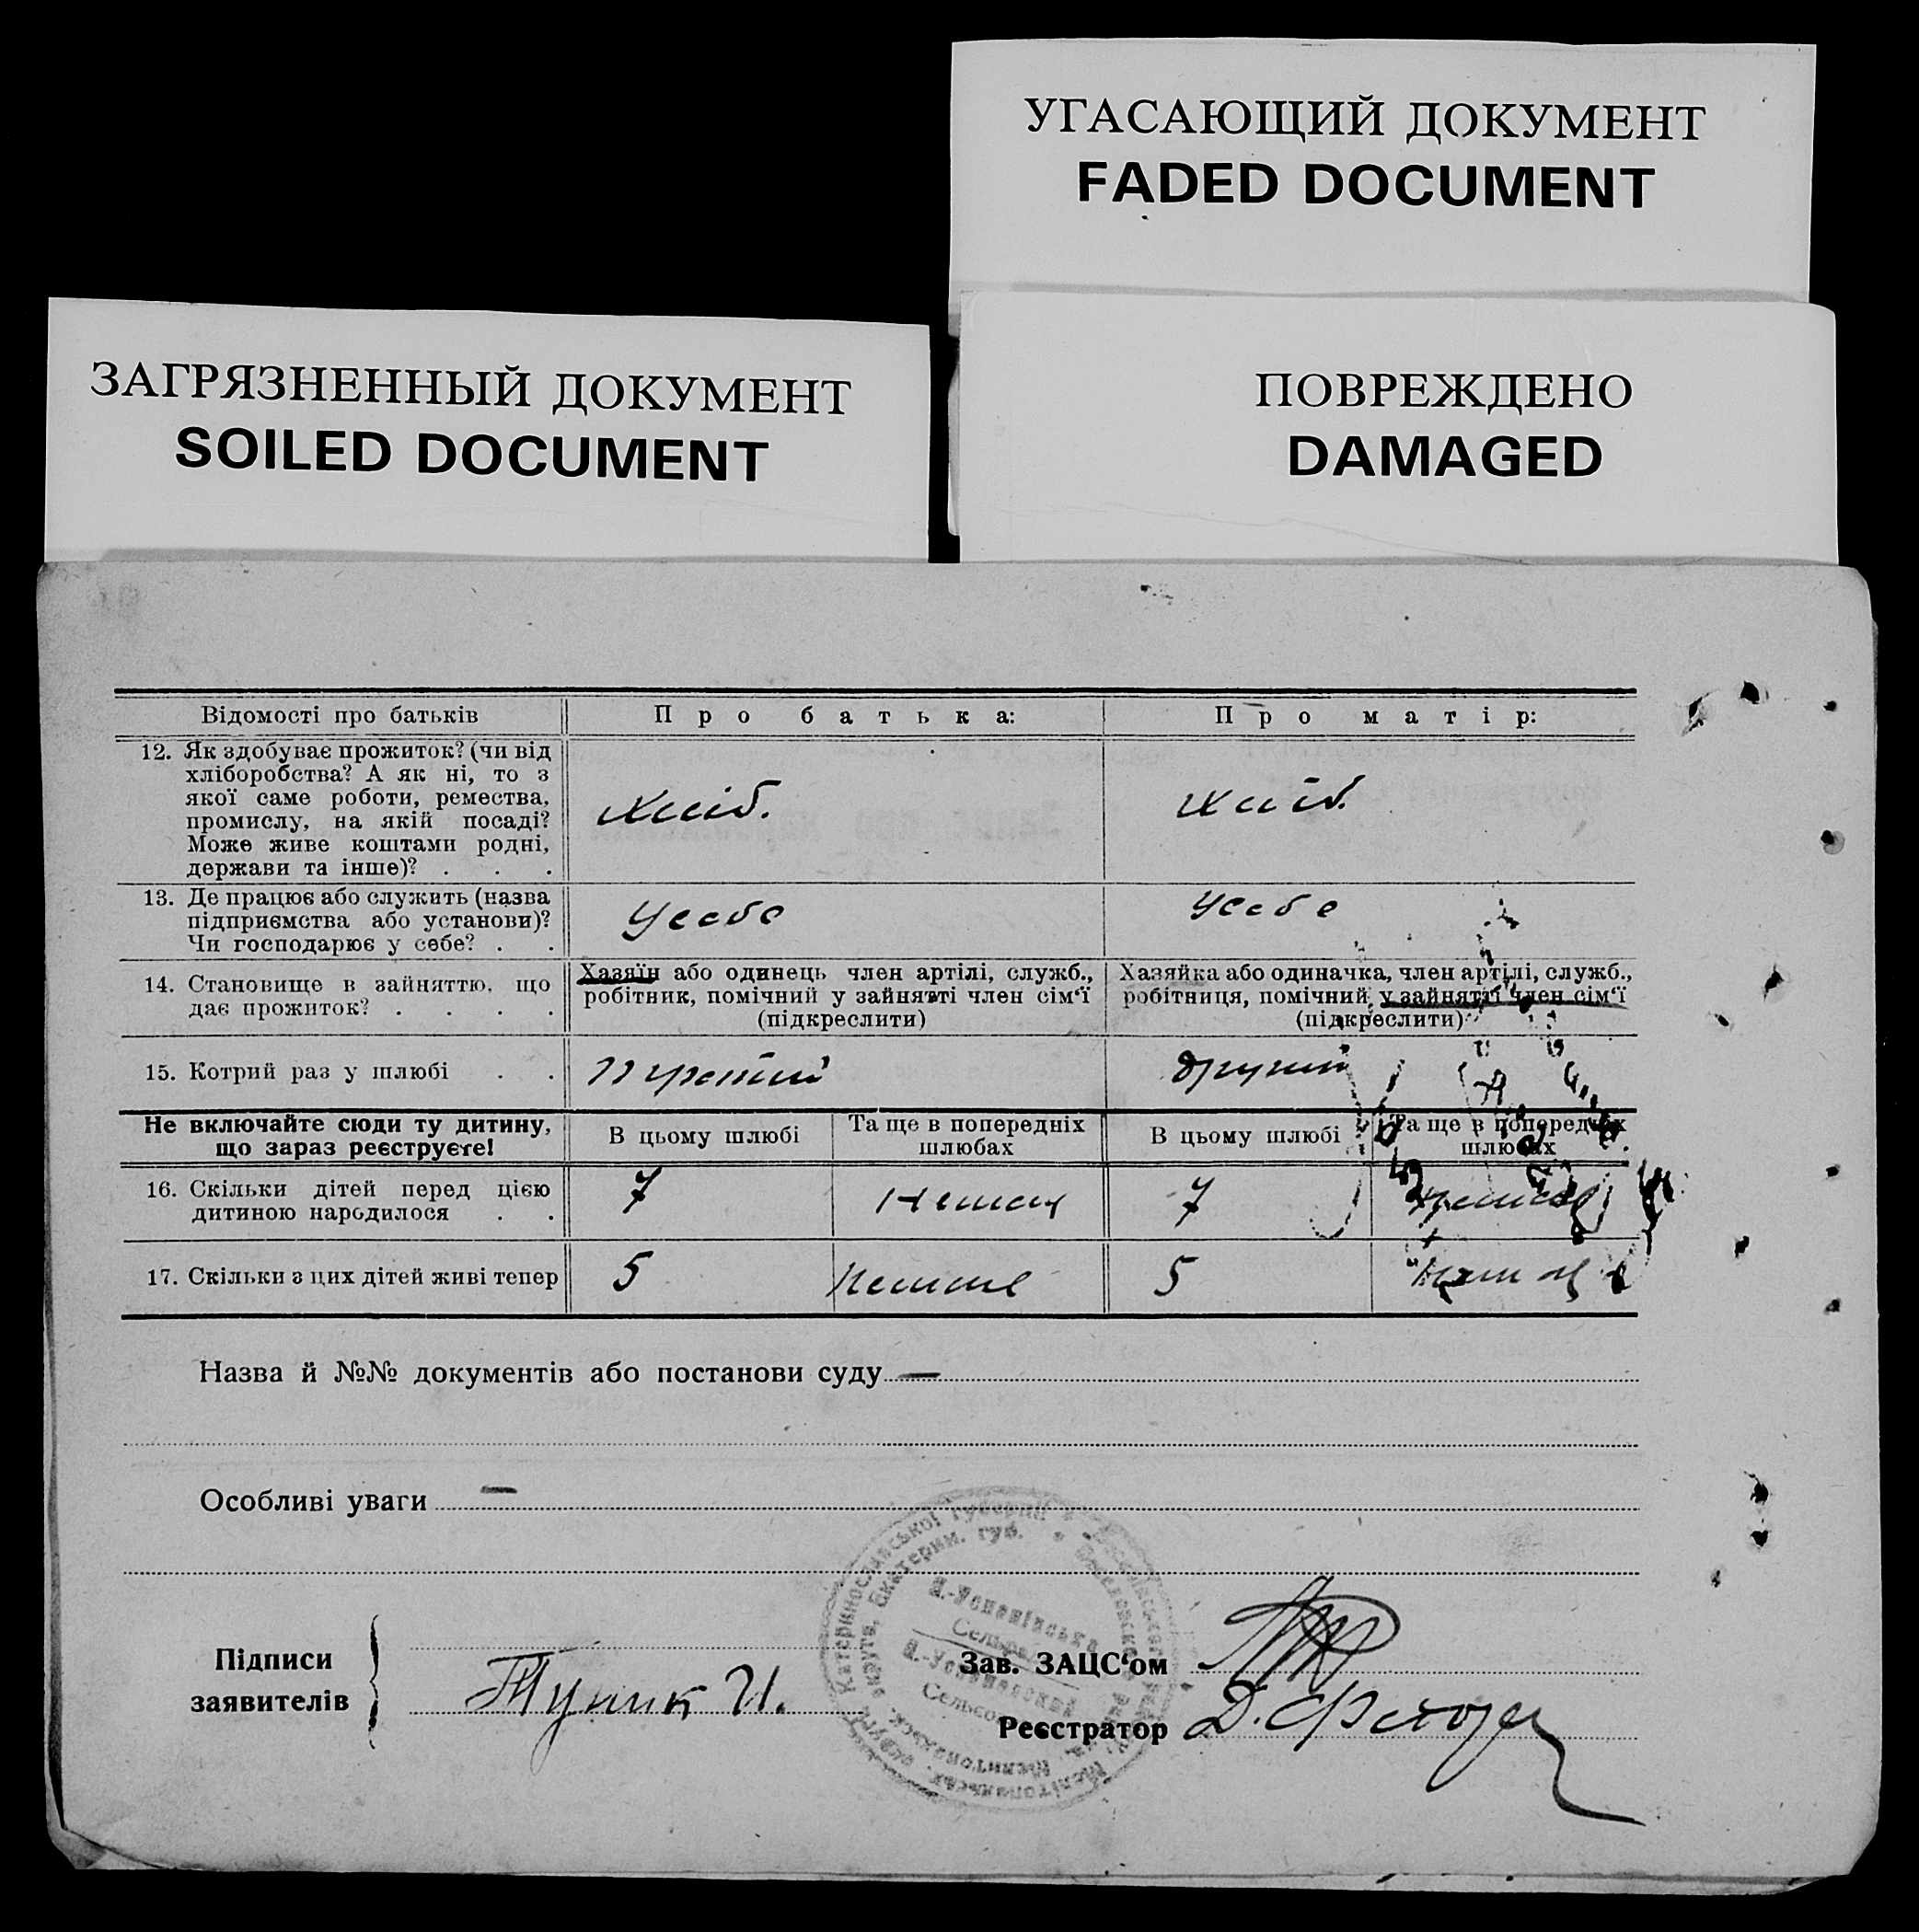 УГАСАЮЩИЙ ДОКУМЕНТ
FADED DOCUMENT
ЗАГРЯЗНЕННЫЙ ДОКУМЕНТ
SOILED DOCUMENT
ПОВРЕЖДЕНО
DAMAGED
Відомості про батьків
Про батька:
Про матір:
12. Як здобуває прожиток? (чи від
хліборобства? А як ні, то з
якої саме роботи, ремества,
промислу, на якій посаді?
Може живе коштами родні,
держави та інше)? . . .
Хліб.
Хліб.
13. Де працює або служить (назва
підприємства або установи)?
Чи господарює у себе? . .
У себе
У себе
14. Становище в зайняттю, що
дає прожиток? . . . .
Хазяїн або одинець член артілі, служб.,
робітник, помічний у зайнятті член сім'ї
(підкреслити)
Хазяйка або одиначка, член артілі, служб.,
робітниця, помічний у зайнятті член сім'ї
(підкреслити)
15. Котрий раз у шлюбі . .
другий
Не включайте сюди ту дитину,
що зараз реєструєте!
В цьому шлюбі
Та ще в попередніх
шлюбах
В цьому шлюбі
Та ще в попередніх
шлюбах
16. Скільки дітей перед цією
дитиною народилося . .
7
Немає
7
17. Скільки з цих дітей живі тепер
5
5
Назва й №№ документів або постанови суду —
Особливі уваги —
Н.-Успенівська
Сельрада
Н.-Успеновский
Підписи
заявителів
Тупик И.
Зав. ЗАЦС'ом
Реєстратор